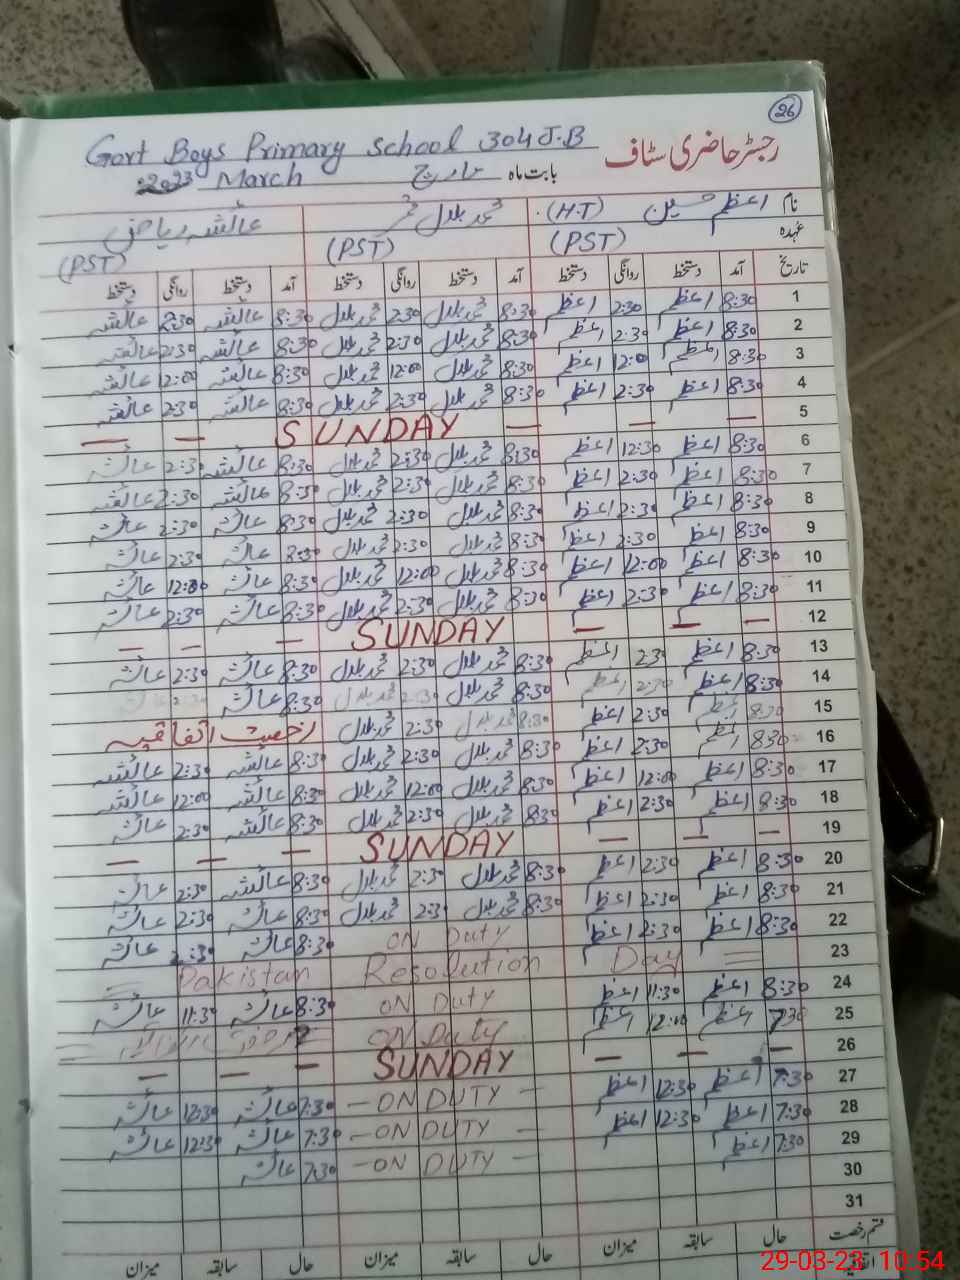 26
Govt Boys Primary School 304 J.B
رجسٹر حاضری سٹاف
بابت ماہ مارچ March 2023
نام اعظم حسین (H.T) محمد بلال عمر عائشہ ریاض
عہدہ (PST) (PST) (PST)
تاریخ آمد دستخط روانگی دستخط آمد دستخط روانگی دستخط آمد دستخط روانگی دستخط
1 8:30 اعظم 2:30 اعظم 8:30 محمد بلال 2:30 محمد بلال 8:30 عائشہ 2:30 عائشہ
2 8:30 اعظم 2:30 اعظم 8:30 محمد بلال 2:30 محمد بلال 8:30 عائشہ 2:30 عائشہ
3 8:30 اعظم 12:00 اعظم 8:30 محمد بلال 12:00 محمد بلال 8:30 عائشہ 12:00 عائشہ
4 8:30 اعظم 2:30 اعظم 8:30 محمد بلال 2:30 محمد بلال 8:30 عائشہ 2:30 عائشہ
5 — — — SUNDAY — —
6 8:30 اعظم 12:30 اعظم 8:30 محمد بلال 2:30 محمد بلال 8:30 عائشہ 2:30 عائشہ
7 8:30 اعظم 2:30 اعظم 8:30 محمد بلال 2:30 محمد بلال 8:30 عائشہ 2:30 عائشہ
8 8:30 اعظم 2:30 اعظم 8:30 محمد بلال 2:30 محمد بلال 8:30 عائشہ 2:30 عائشہ
9 8:30 اعظم 2:30 اعظم 8:30 محمد بلال 2:30 محمد بلال 8:30 عائشہ 2:30 عائشہ
10 8:30 اعظم 12:00 اعظم 8:30 محمد بلال 12:00 محمد بلال 8:30 عائشہ 12:00 عائشہ
11 8:30 اعظم 2:30 اعظم 8:30 محمد بلال 2:30 محمد بلال 8:30 عائشہ 2:30 عائشہ
12 — — — SUNDAY — — —
13 8:30 اعظم 2:30 اعظم 8:30 محمد بلال 2:30 محمد بلال 8:30 عائشہ 2:30 عائشہ
14 8:30 اعظم 2:30 اعظم 8:30 محمد بلال 2:30 محمد بلال 8:30 عائشہ 2:30 عائشہ
15 8:30 اعظم 2:30 اعظم 8:30 محمد بلال 2:30 محمد بلال رخصت اتفاقیہ
16 8:30 اعظم 2:30 اعظم 8:30 محمد بلال 2:30 محمد بلال 8:30 عائشہ 2:30 عائشہ
17 8:30 اعظم 12:00 اعظم 8:30 محمد بلال 12:00 محمد بلال 8:30 عائشہ 12:00 عائشہ
18 8:30 اعظم 2:30 اعظم 8:30 محمد بلال 2:30 محمد بلال 8:30 عائشہ 2:30 عائشہ
19 — — — SUNDAY — — —
20 8:30 اعظم 2:30 اعظم 8:30 محمد بلال 2:30 محمد بلال 8:30 عائشہ 2:30 عائشہ
21 8:30 اعظم 2:30 اعظم 8:30 محمد بلال 2:30 محمد بلال 8:30 عائشہ 2:30 عائشہ
22 8:30 اعظم 2:30 اعظم ON Duty 8:30 عائشہ 2:30 عائشہ
23 Pakistan Resolution Day
24 8:30 اعظم 11:30 اعظم ON Duty 8:30 عائشہ 11:30 عائشہ
25 7:30 اعظم 12:00 اعظم ON Duty
26 — — — SUNDAY — — —
27 7:30 اعظم 12:30 اعظم — ON DUTY — 7:30 عائشہ 12:30 عائشہ
28 7:30 اعظم 12:30 اعظم — ON DUTY — 7:30 عائشہ 12:30 عائشہ
29 7:30 اعظم — ON DUTY — 7:30 عائشہ
30
31
قسم رخصت حال سابقہ میزان حال سابقہ میزان حال سابقہ میزان
29-03-23 10:54